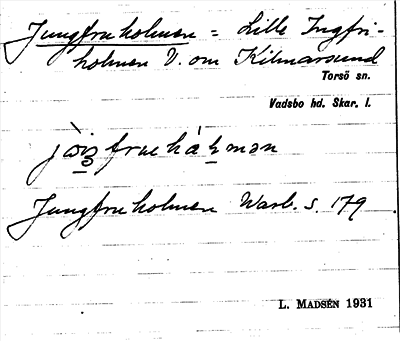 Jungfruholmen = Lille Ingfri-
holmen V. om Kilmarsund
Torsö sn.
Vadsbo hd. Skar. l.
Jungfruholmen Warb. s. 179.
L. MADSÉN 1931